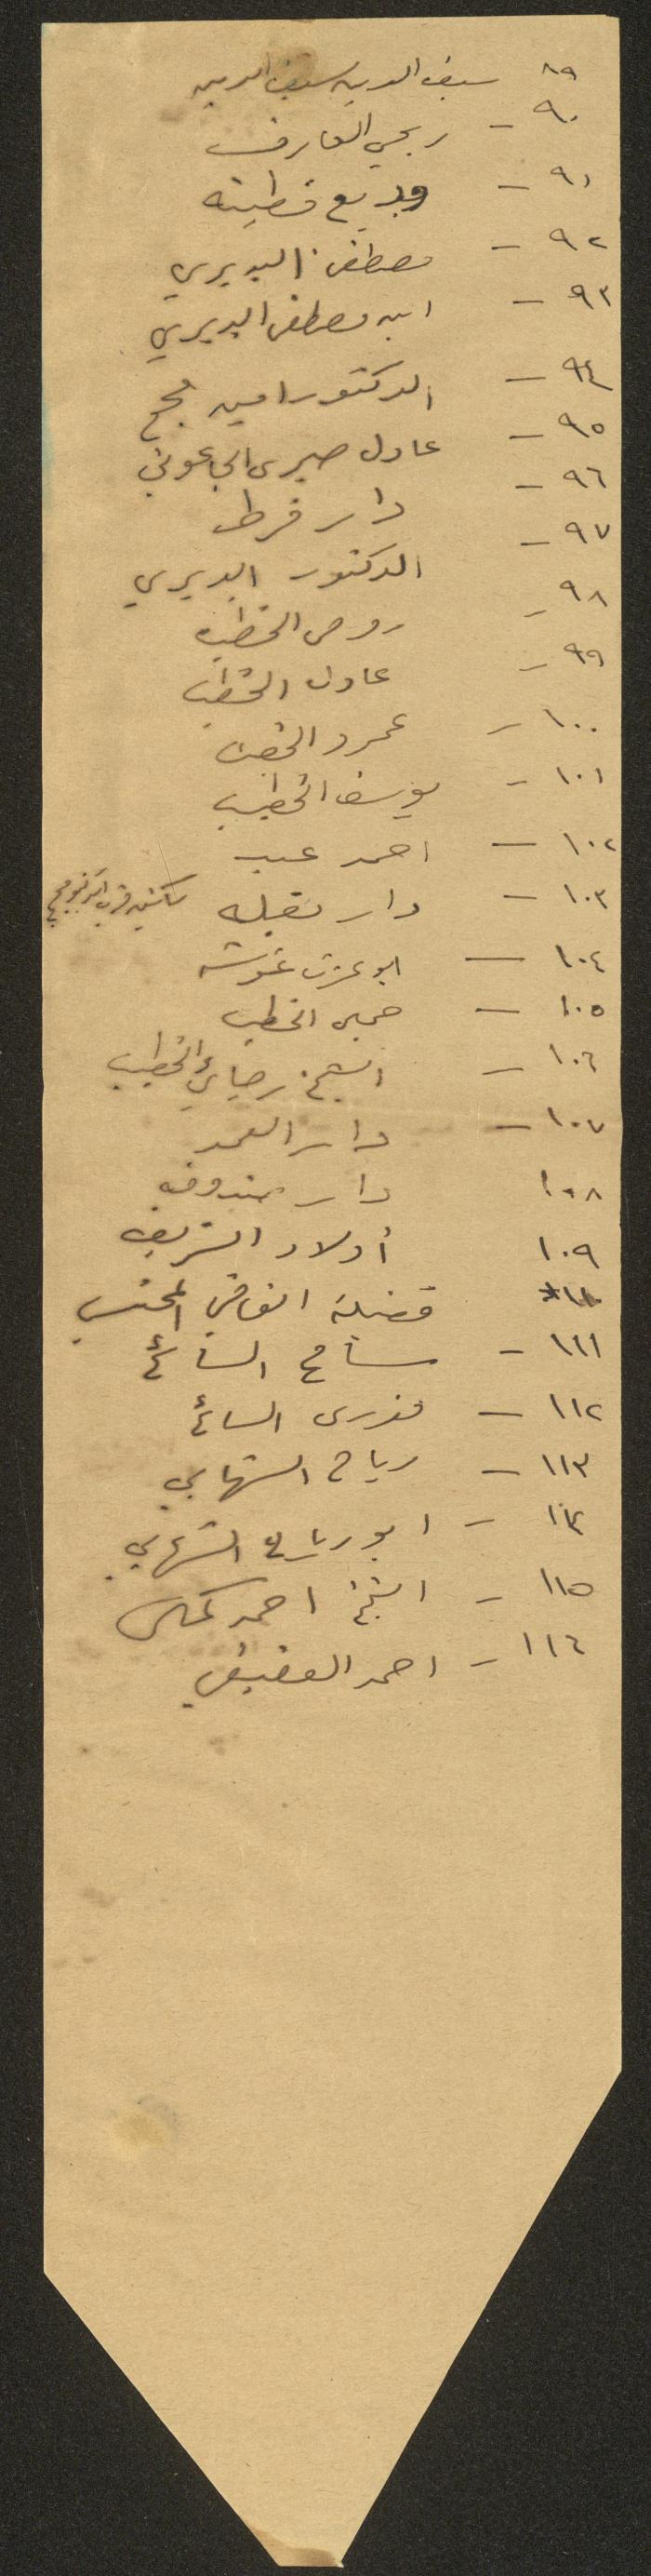 ٨٩ سيف الدين سيف الدين
٩٠ - ربحي العارف
٩١ - وديع قطينه
٩٢ - مصطفى البديري
٩٣ - ابن مصطفى البديري
٩٤ - الدكتور امين مجج
٩٥ - عادل صبري الجاعوني
٩٦ - دار قرط
٩٧ - الدكتور البديري
٩٨ - روحي الخطيب
٩٩ - عادل الخطيب
١٠٠ -
١٠١ - يوسف الخطيب
١٠٢ - احمد عبد
١٠٣ - دار
١٠٤ - ابو عزت غوشه
١٠٥ - الخطيب
١٠٦ - الشيخ رجائي الخطيب
١٠٧ - دار العمد
١٠٨ دار صندوقه
١٠٩ أولاد الشريف
١١٠ فضيلة القاضي المحتسب
١١١ - سامح السائح
١١٢ - فوزي السائح
١١٣ - رياح الشهابي
١١٤ - ابو رياح الشهابي
١١٥ - الشيخ احمد
١١٦ - احمد العفيفي